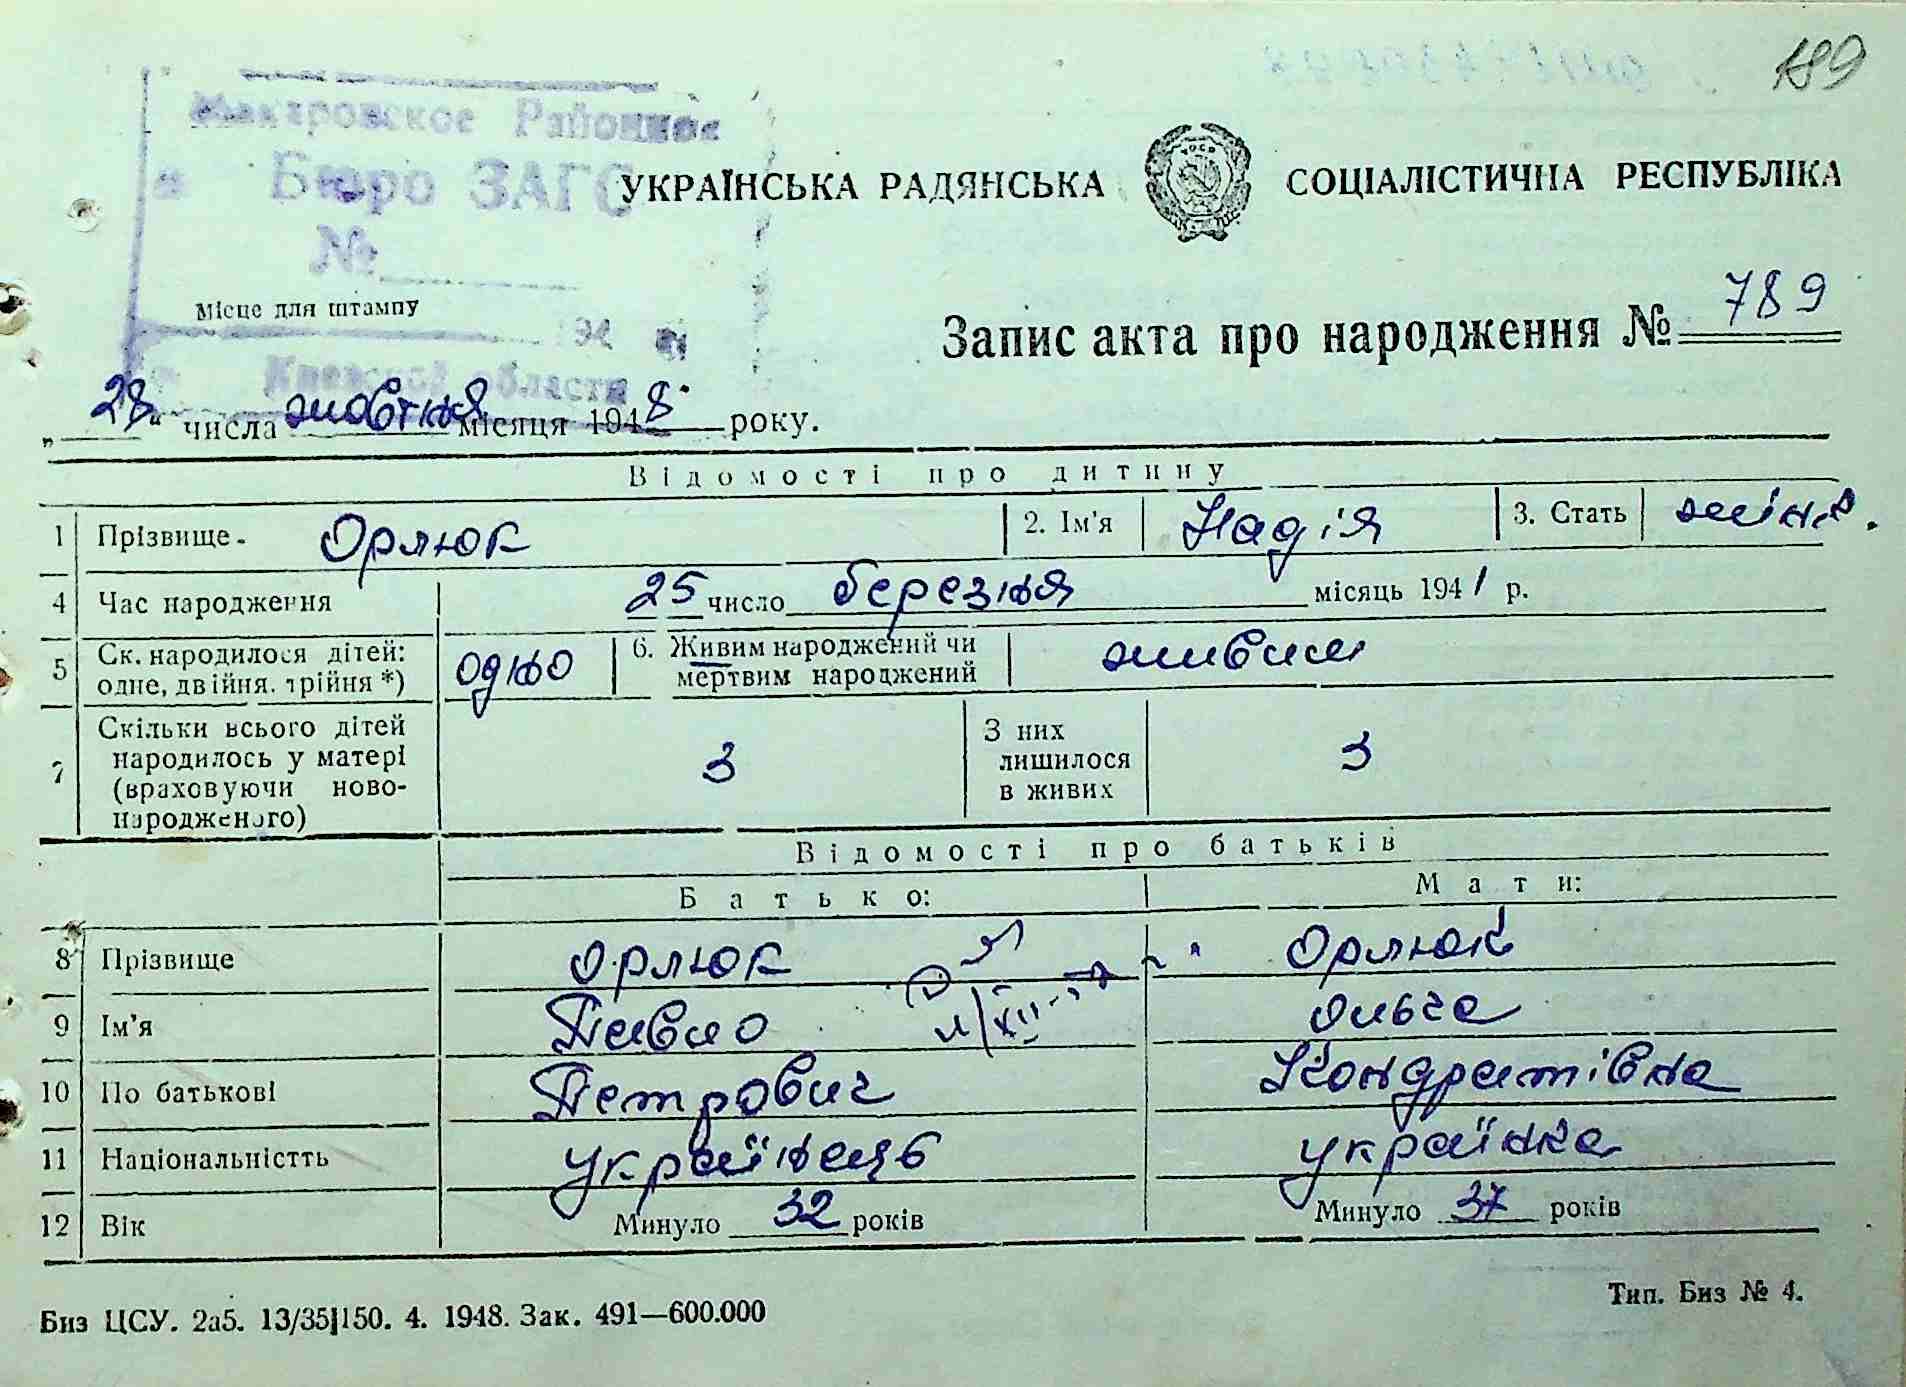 189
Макаровское Районное
Бюро ЗАГС
№
УКРАЇНСЬКА РАДЯНСЬКА СОЦІАЛІСТИЧНА РЕСПУБЛІКА
Місце для штампу
194
Киевской области
Запис акта про народження № 789
„28“ числа жовтня місяця 1948 року.
Відомості про дитину
1 Прізвище - Орлюк 2. Ім'я Надія 3. Стать жіноч.
4 Час народження 25 число березня місяць 1941 р.
5 Ск. народилося дітей: одне, двійня, трійня *) одно 6. Живим народжений чи мертвим народжений живим
7 Скільки всього дітей народилось у матері (враховуючи новонародженого) 3 З них лишилося в живих 3
Відомості про батьків
Батько: Мати:
8 Прізвище Орлюк Орлюк
9 Ім'я Павло Ольга
10 По батькові Петрович Кондратівна
11 Національністть українець українка
12 Вік Минуло 32 років Минуло 37 років
Биз ЦСУ. 2а5. 13/35|150. 4. 1948. Зак. 491—600.000
Тип. Биз № 4.